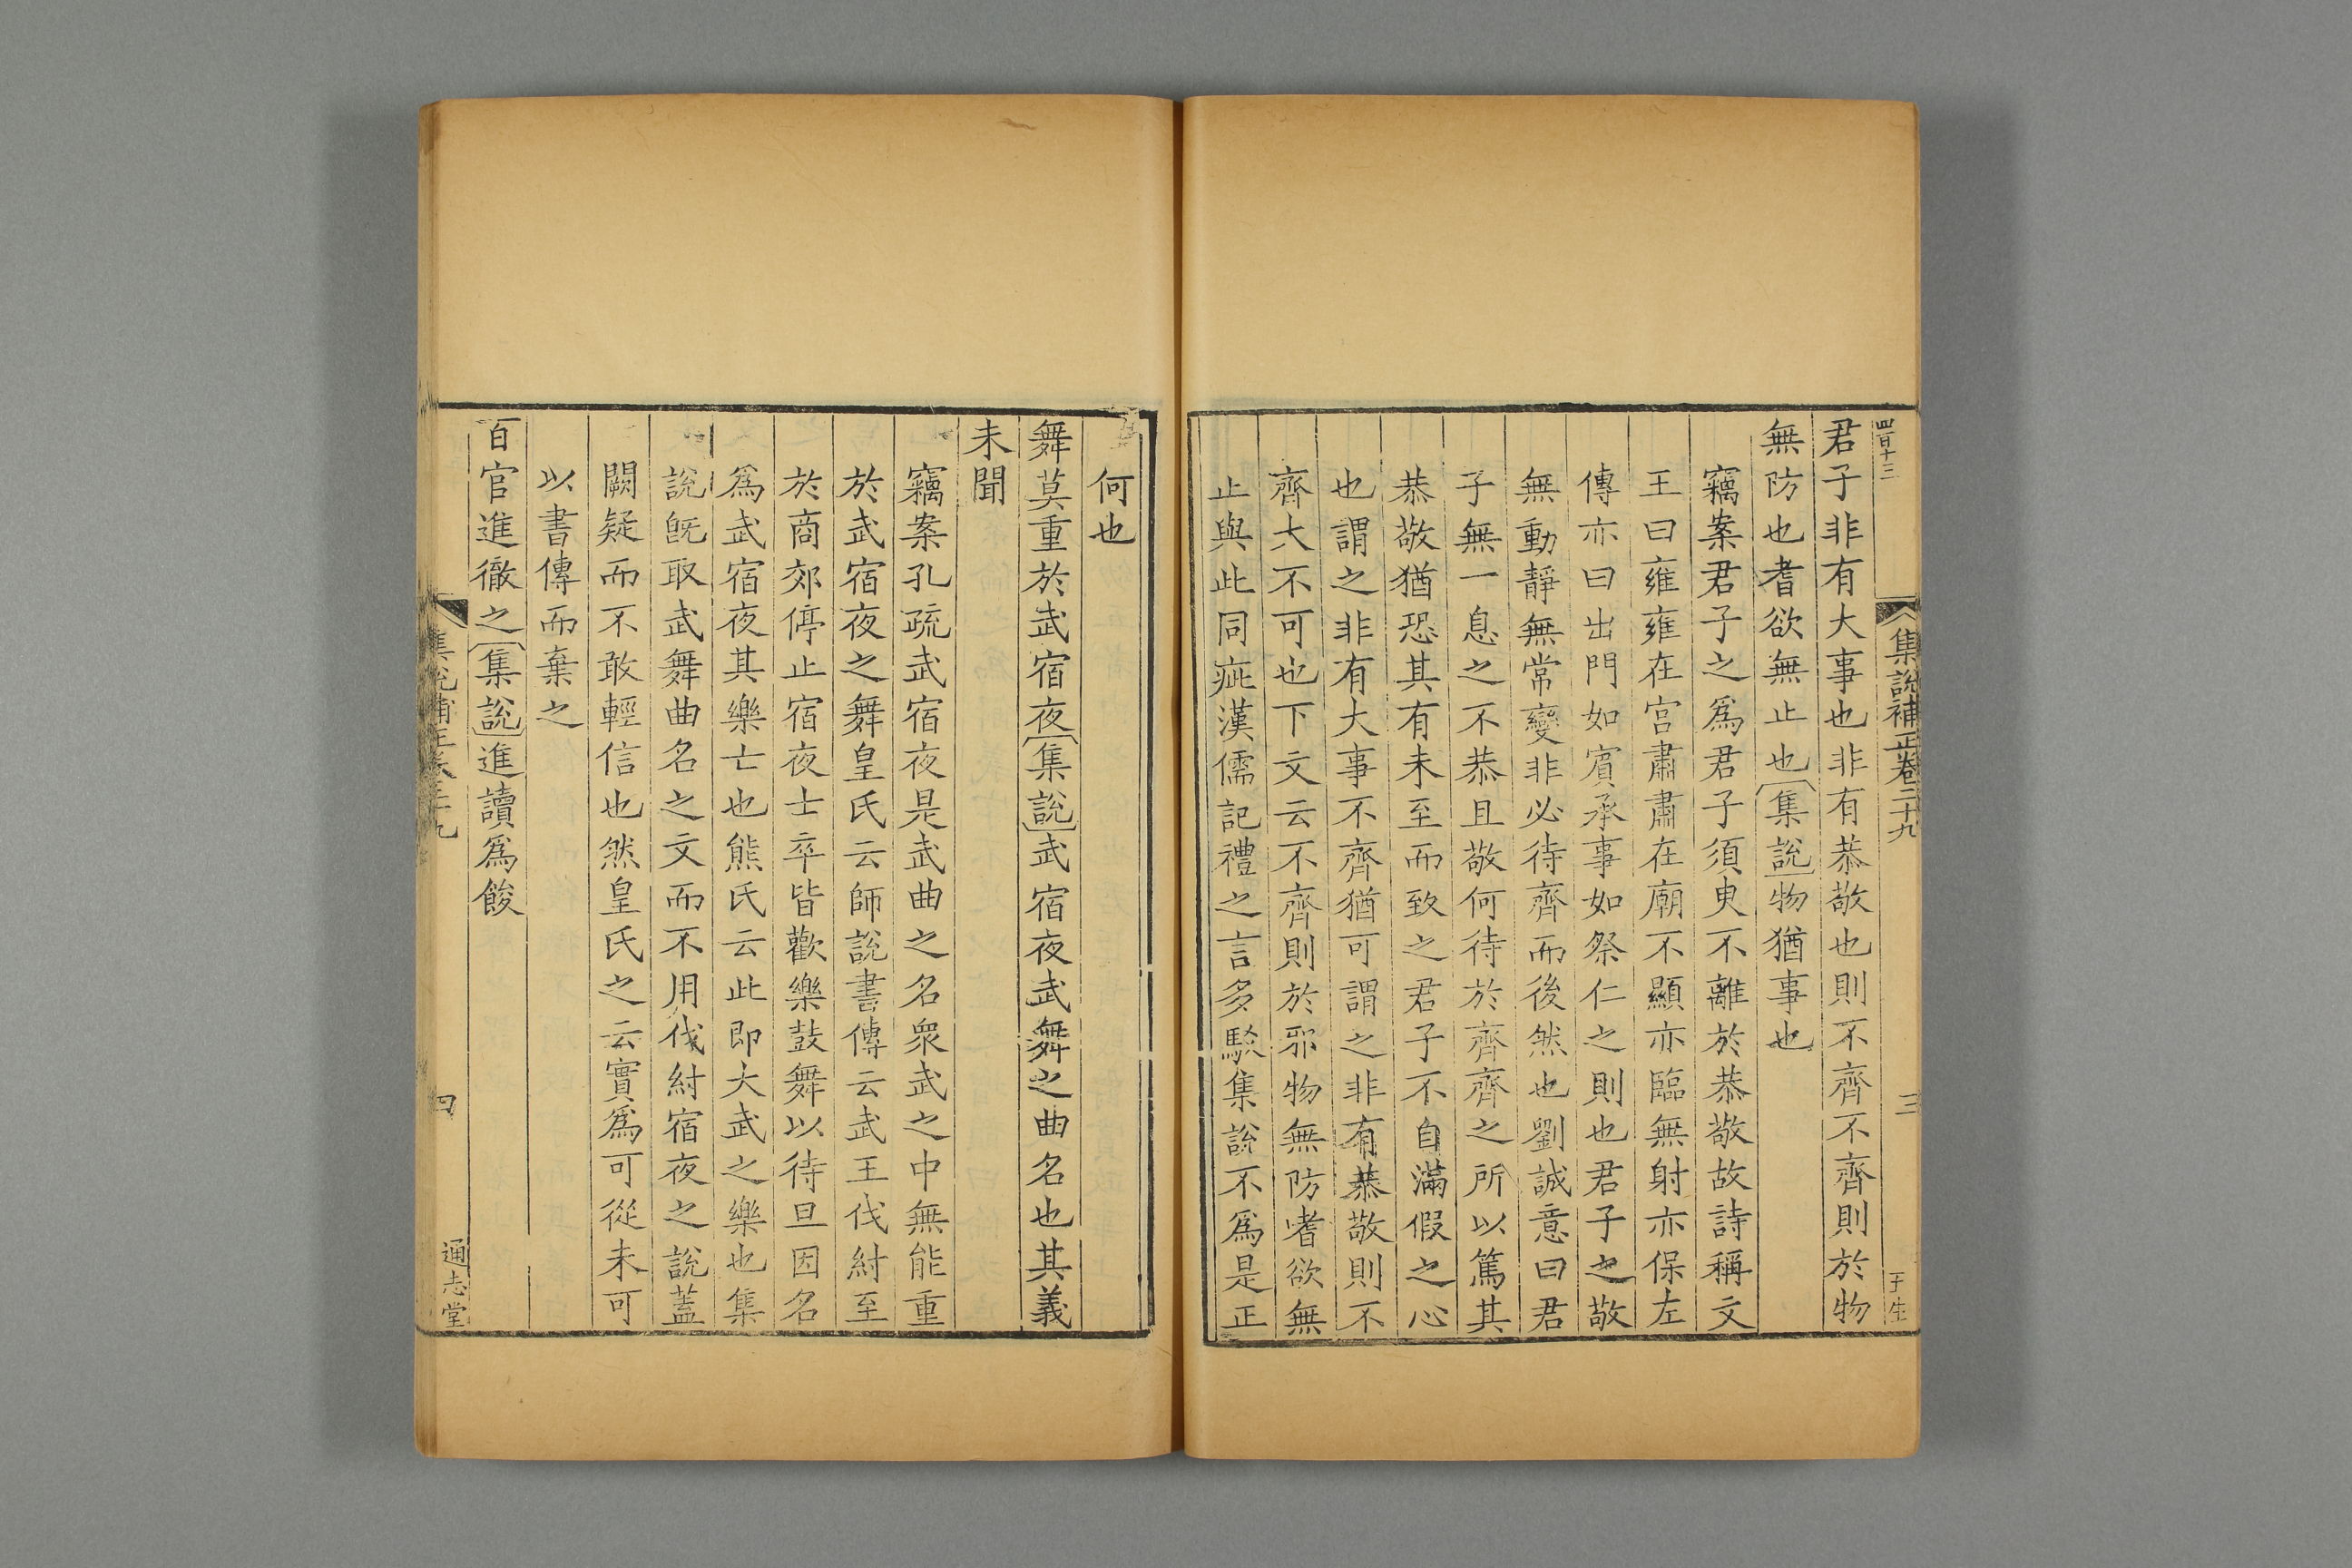 四百十三
集說補正卷二十九
三
君子非有大事也非有恭敬也則不齊不齊則於物
無防也耆欲無止也集說物猶事也
竊案君子之爲君子須臾不離於恭敬故詩稱文
王曰雍雍在宮肅肅在廟不顯亦臨無射亦保左
傳亦曰出門如賓承事如祭仁之則也君子之敬
無動靜無常變非必待齊而後然也劉誠意曰君
子無一息之不恭且敬何待於齊齊之所以篤其
恭敬猶恐其有未至而致之君子不自滿假之心
也謂之非有大事不齊猶可謂之非有恭敬則不
齊大不可也下文云不齊則於邪物無防嗜欲無
止與此同疵漢儒記禮之言多駁集說不爲是正
何也
舞莫重於武宿夜集說武宿夜武舞之曲名也其義
未聞
竊案孔疏武宿夜是武曲之名衆武之中無能重
於武宿夜之舞皇氏云師說書傳云武王伐紂至
於商郊停止宿夜士卒皆歡樂鼓舞以待旦因名
爲武宿夜其樂亡也熊氏云此即大武之樂也集
說旣取武舞曲名之文而不用伐紂宿夜之說蓋
闕疑而不敢輕信也然皇氏之云實爲可從未可
以書傳而棄之
百官進徹之集說進讀爲餕
集說補正卷二十九
四
通志堂